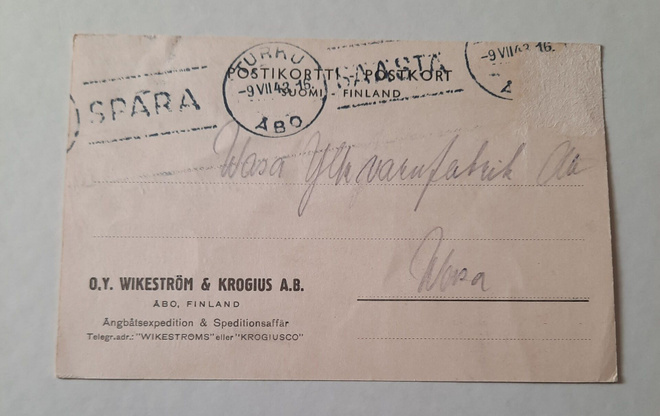 SPARA
TURKU
-9 VII 42 16.
ÅBO
SÄÄSTÄ
-9 VII 42 16.
POSTIKORTTI - POSTKORT
SUOMI - FINLAND
Wasa Ylle varnfabrik Ab
Wasa
O.Y. WIKESTRÖM & KROGIUS A.B.
ÅBO, FINLAND
Ångbåtsexpedition & Speditionsaffär
Telegr.adr.: "WIKESTRÖMS" eller "KROGIUSCO"